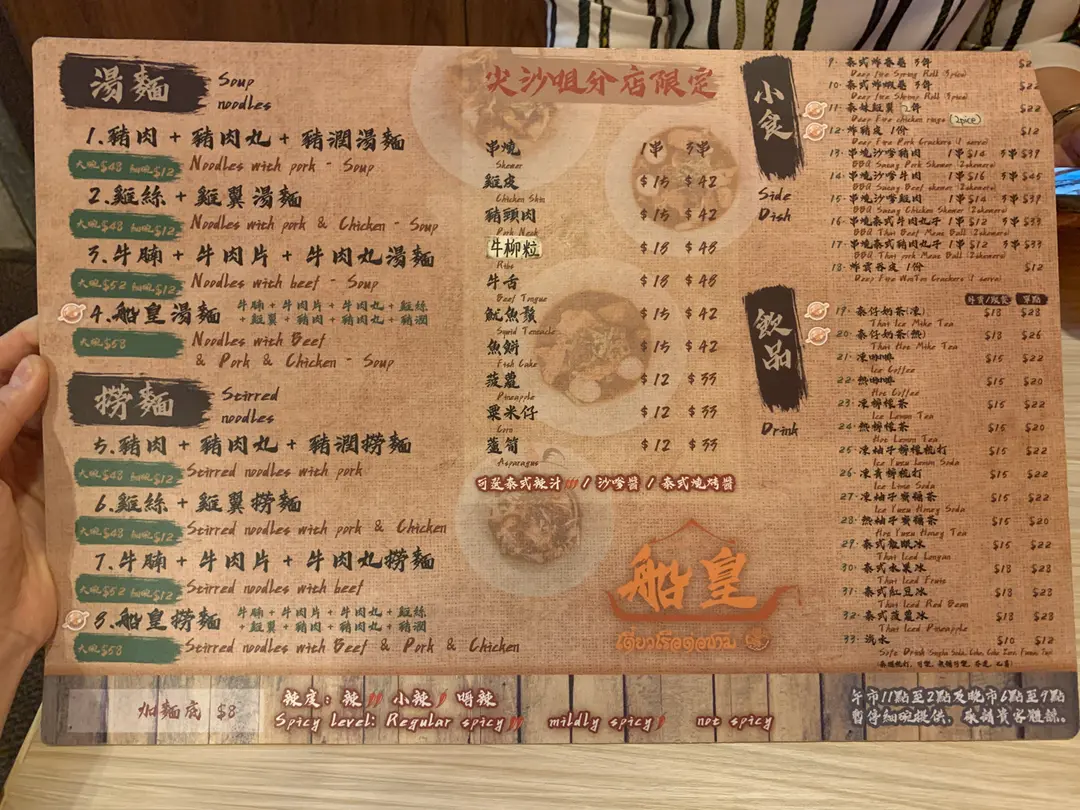 湯麵
Soup
noodles
1.豬肉 + 豬肉丸 + 豬潤湯麵
大碗$48 細碗$12 Noodles with pork - Soup
2.雞絲 + 雞翼湯麵
大碗$48 細碗$12 Noodles with pork & Chicken - Soup
3.牛腩 + 牛肉片 + 牛肉丸湯麵
大碗$52 細碗$12 Noodles with beef - Soup
4.船皇湯麵 牛腩 + 牛肉片 + 牛肉丸 + 雞絲
+ 雞翼 + 豬肉 + 豬肉丸 + 豬潤
大碗$58 Noodles with Beef
& Pork & Chicken - Soup
撈麵
Stirred
noodles
5.豬肉 + 豬肉丸 + 豬潤撈麵
大碗$48 細碗$12 Stirred noodles with pork
6.雞絲 + 雞翼撈麵
大碗$48 細碗$12 Stirred noodles with pork & Chicken
7.牛腩 + 牛肉片 + 牛肉丸撈麵
大碗$52 細碗$12 Stirred noodles with beef
8.船皇撈麵 牛腩 + 牛肉片 + 牛肉丸 + 雞絲
+ 雞翼 + 豬肉 + 豬肉丸 + 豬潤
大碗$58 Stirred noodles with Beef & Pork & Chicken
尖沙咀分店限定
串燒 1串 3串
Skewer
雞皮 $15 $42
Chicken Skin
豬頸肉 $15 $42
Pork Neck
牛柳粒 $18 $48
牛舌 $18 $48
Beef Tongue
魷魚鬚 $15 $42
Squid Tentacle
魚餅 $15 $42
Fish Cake
菠蘿 $12 $33
Pineapple
粟米仔 $12 $33
Corn
蘆筍 $12 $33
Asparagus
可選泰式辣汁 / 沙嗲醬 / 泰式燒烤醬
船皇
小食
Side
Dish
9. 泰式炸春卷 3件
Deep Fire Spring Roll 3pice)
10. 泰式炸蝦卷 3件
Deep Fire Shrimp Roll 3pice)
11. 泰妹雞翼 2件 $22
Deep Fire chicken (2pice)
12. 炸豬皮 1份 $12
Deep Fire Pork Crackers (1 serve)
13. 串燒沙嗲豬肉 1串$14 3串$39
BBQ Satay Pork Skewer
14. 串燒沙嗲牛肉 1串$16 3串$45
BBQ Satay Beef skewer
15. 串燒沙嗲雞肉 1串$14 3串$39
BBQ Satay Chicken Skewer
16. 串燒泰式牛肉丸子 1串$12 3串$33
BBQ Thai Beef Meat Ball
17. 串燒泰式豬肉丸子 1串$12 3串$33
BBQ Thai pork Meat Ball
18. 炸雲吞皮 1份 $12
Deep Fire WonTon Crackers (1 serve)
飲品
Drink
外賣/跟餐 單點
19. 泰仔奶茶(凍) $18 $28
Thai Ice Milk Tea
20. 泰仔奶茶(熱) $18 $26
Thai Hot Milk Tea
21. 凍咖啡 $15 $22
Ice Coffee
22. 熱咖啡 $15 $20
Hot Coffee
23. 凍檸檬茶 $15 $22
Ice Lemon Tea
24. 熱檸檬茶 $15 $20
Hot Lemon Tea
25. 凍柚子檸檬梳打 $15 $22
Ice Yuzu Lemon Soda
26. 凍青檸梳打 $15 $22
Ice Lime Soda
27. 凍柚子蜜糖茶 $15 $22
Ice Yuzu Honey Soda
28. 熱柚子蜜糖茶 $15 $20
Hot Yuzu Honey Tea
29. 泰式龍眼冰 $15 $22
Thai Iced Longan
30. 泰式水果冰 $18 $28
Thai Iced Fruit
31. 泰式紅豆冰 $18 $28
Thai Iced Red Bean
32. 泰式菠蘿冰 $18 $28
Thai Iced Pineapple
33. 汽水 $10 $12
加麵底 $8
辣度：辣 小辣 唔辣
Spicy level: Regular spicy mildly spicy not spicy
午市11點至2點及晚市6點至9點
暫停細碗提供，敬請貴客體諒。